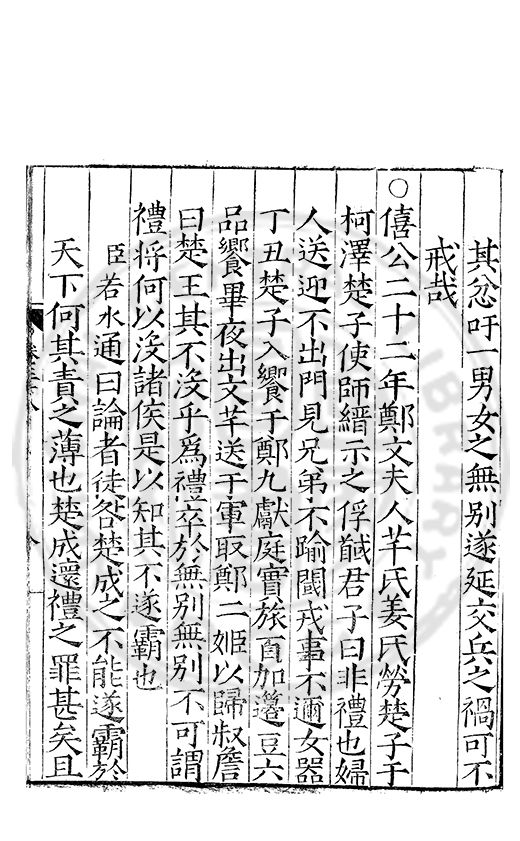 其忿吁一男女之無别遂延交兵之禍可不
戒哉
○僖公二十二年鄭文夫人芊氏姜氏勞楚子于
柯澤楚子使師縉示之俘馘君子曰非禮也婦
人送迎不出門見兄弟不踰閾戎事不邇女器
丁丑楚子入饗于鄭九獻庭實旅百加籩豆六
品饗畢夜出文芊送于軍取鄭二姬以歸叔詹
曰楚王其不沒乎爲禮卒於無别無别不可謂
禮將何以沒諸侯是以知其不遂霸也
臣若水通曰論者徒咎楚成之不能遂霸於
天下何其責之薄也楚成還禮之罪甚矣且